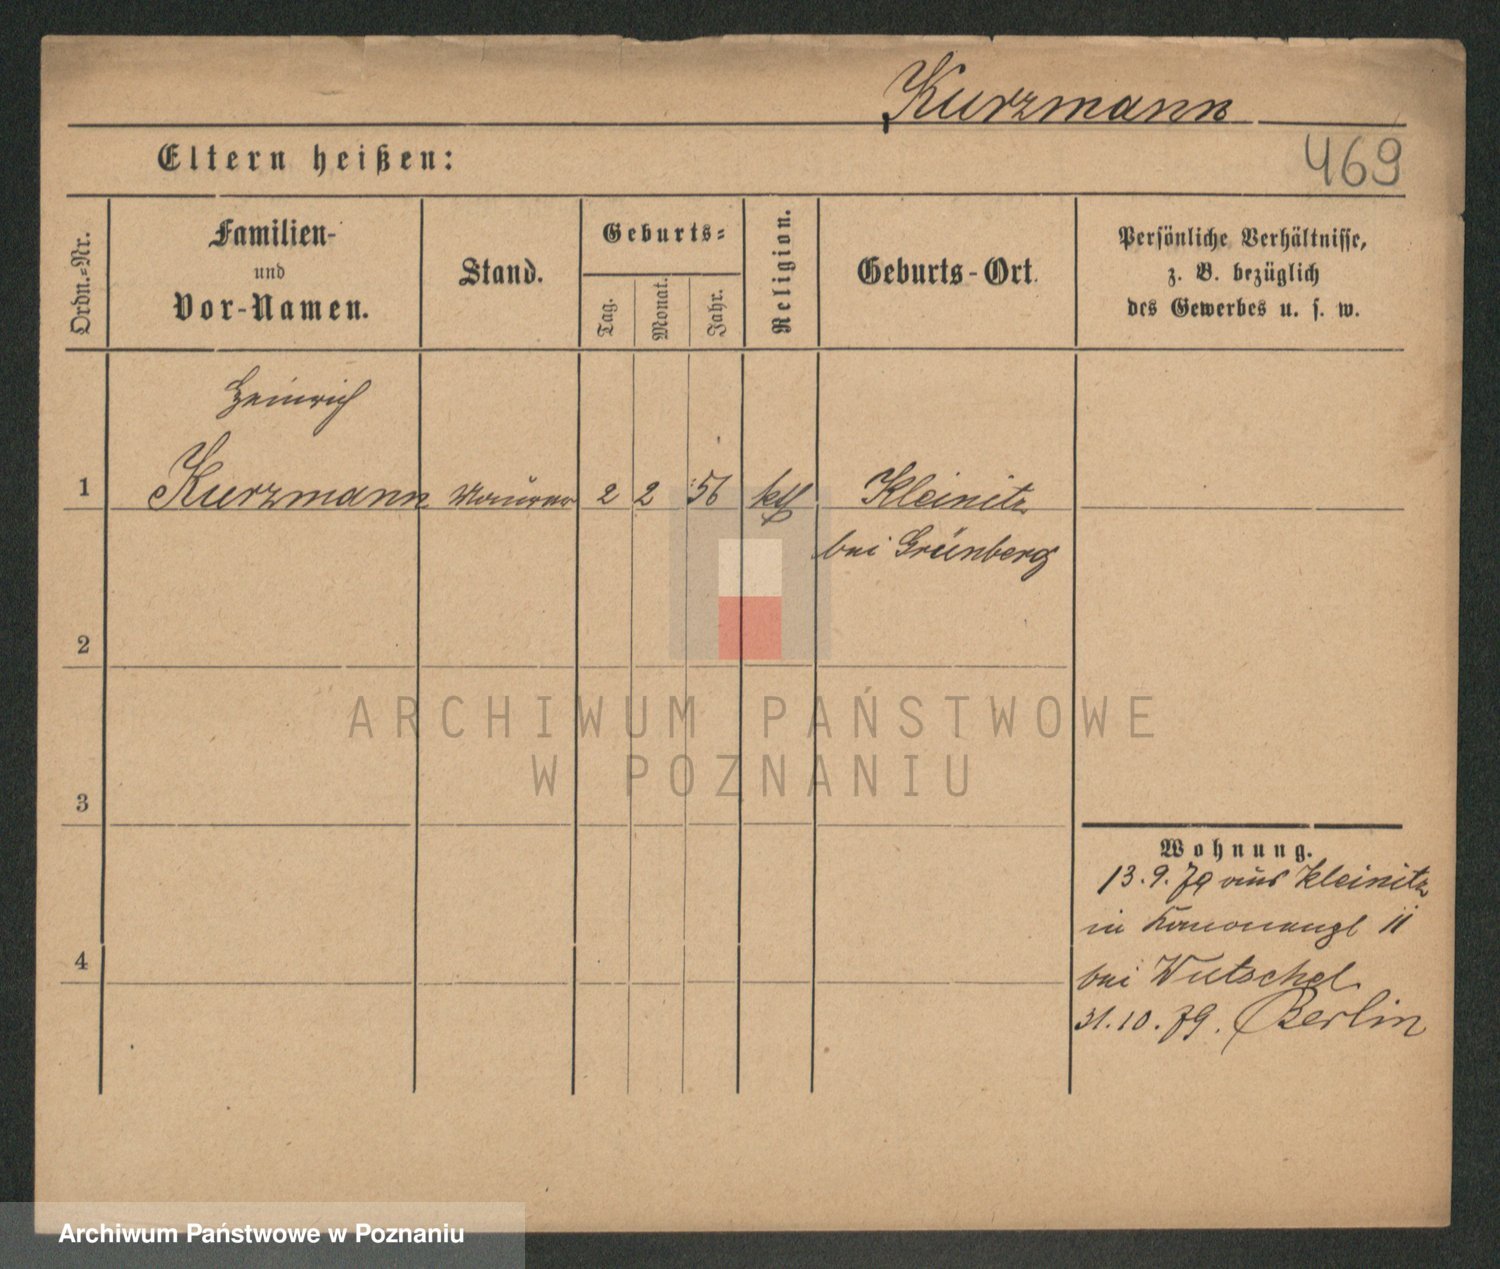 Kurzmann
469
Eltern heißen:
Ordn.=Nr.
Familien-
und
Vor-Namen.
Stand.
Geburts=
Tag.
Monat.
Jahr.
Religion.
Geburts-Ort.
Persönliche Verhältnisse,
z. B. bezüglich
des Gewerbes u. s. w.
Heinrich
1 Kurzmann Maurer 2 2 56 kth Kleinitz
bei Grünberg
2
3
4
Wohnung.
13.9.79 aus Kleinitz
in 11
bei Wutschel
31.10.79. Berlin
ARCHIWUM PAŃSTWOWE
W POZNANIU
Archiwum Państwowe w Poznaniu